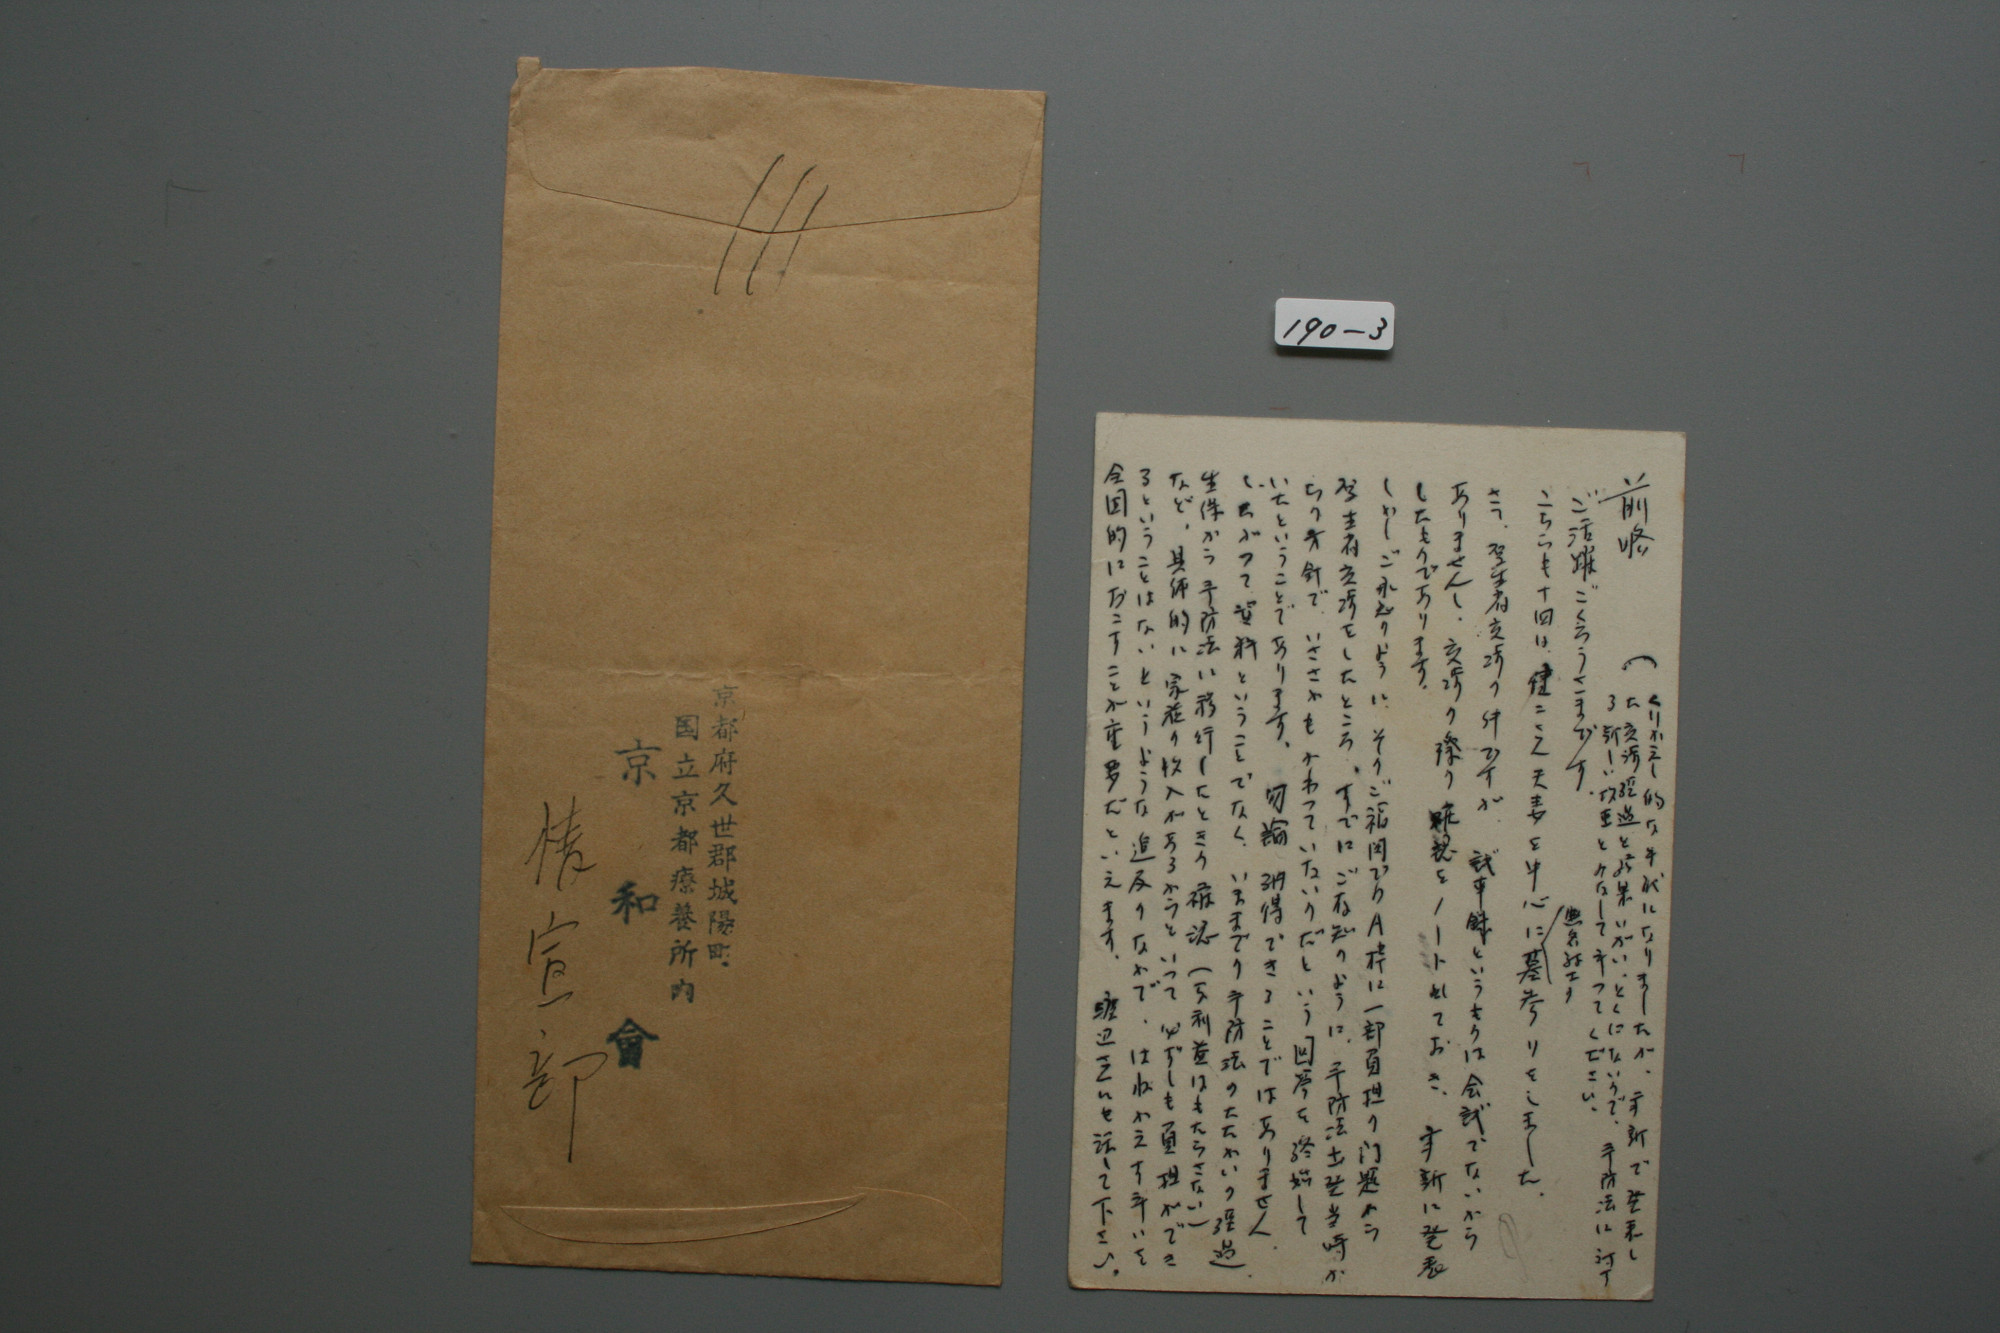 京都府久世郡城陽町
国立京都療養所内
京和會
情宣部
190-3
前略
くりかえし的な手代になりましたが、すで発表し
た交渉経過と結果いがい、とくにないので、予防法に対す
る新しい枚重とみなしてやってください。
ご活躍ごくろうさまです。
こちらも十四は、健二さん夫妻を中心に墓参りをしました。
無名戦士の
さて、厚生省交渉の件ですが、議事録というものは会議でないから
ありません。交渉の際の確認をノートしておき、
したものであります。
しかしご承知のように、そのご福岡でのA枠に一部負担の問題から
厚生省交渉をしたところ、すでにご存知のように、予防法出発当時か
らの方針で、いささかもかわっていないのだという回答を終始して
いたということであります。勿論納得できることではありません。
したがって資料ということでなく、いままでの予防法のたたかいの経過
生保から予防法に移行したときの確認(不利益はもたらさない)
など、具体的に家族の収入があるからといって必ずしも負担ができ
るということはないというような追及のなかで、はねかえす斗いを
全国的におこすことが重要だといえます。渡辺さんにも話して下さい。